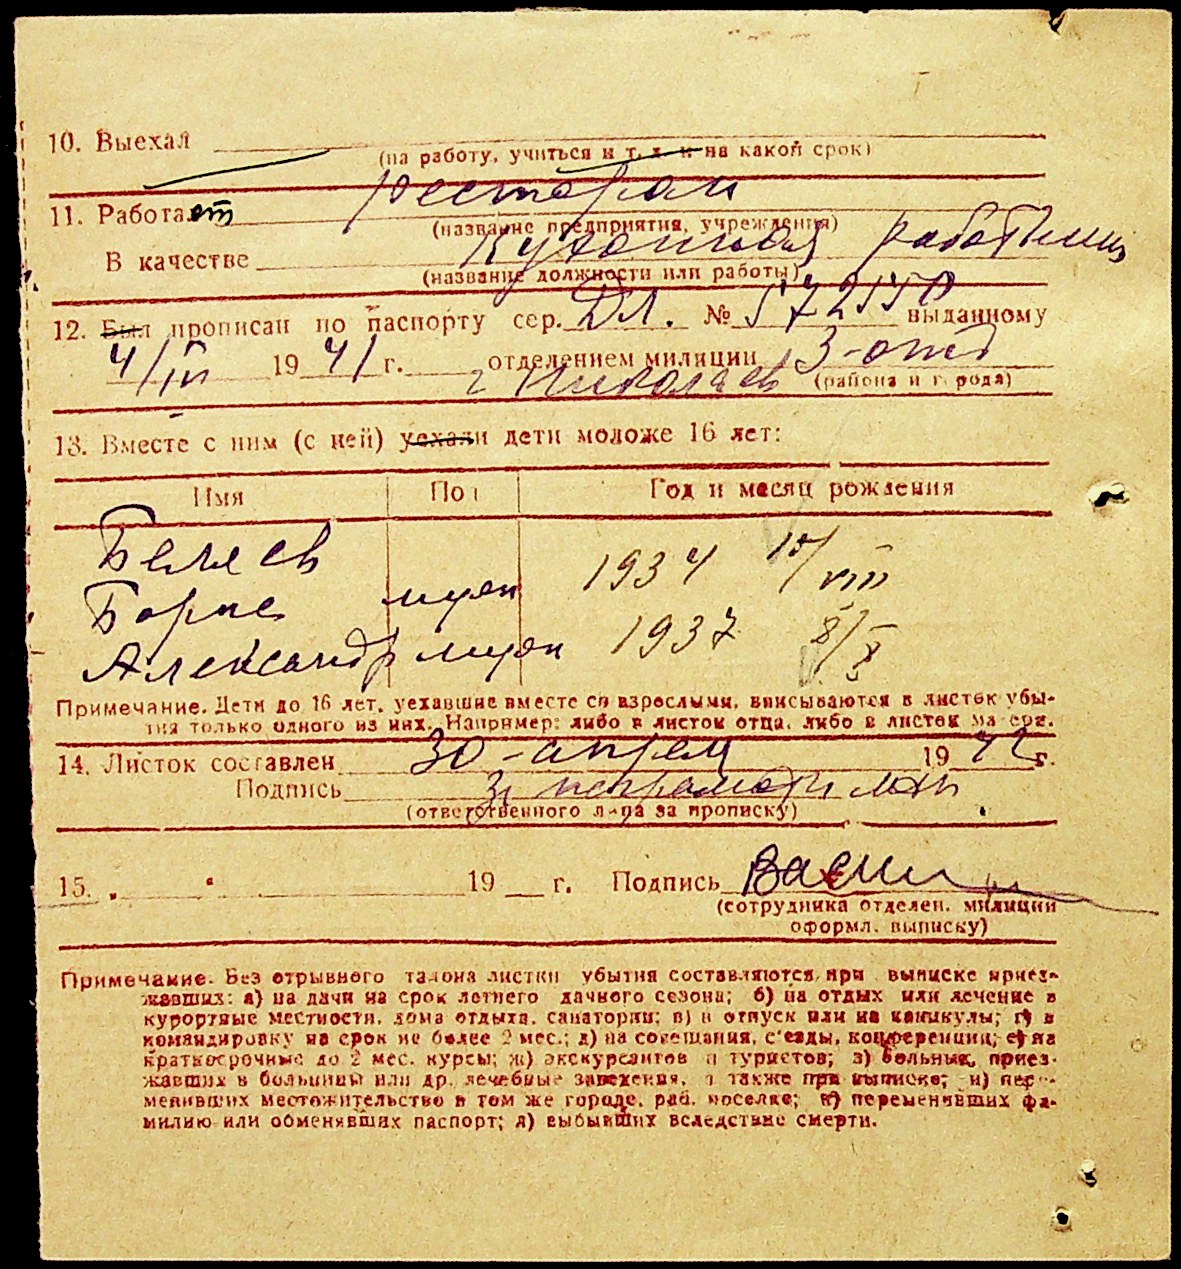 10. Выехал
(на работу, учиться и т. д. и на какой срок)
ресторан
11. Работает
(название предприятия, учреждения)
Кухонная работниц
В качестве
(название должности или работы)
12. Был прописан по паспорту сер. ДЛ. № выданному
4/IV 1941 г. отделением милиции 3-отд
г Николаев (района и города)
13. Вместе с ним (с ней) уехали дети моложе 16 лет:
Имя Пол Год и месяц рождения
Беляев
Борис муж 1934 15/VIII
Александр муж 1937 8/X
Примечание. Дети до 16 лет, уехавшие вместе со взрослыми, вписываются в листок убы-
тия только одного из них. Например: либо в листок отца, либо в листок матери.
14. Листок составлен 30-апреля 1942 г.
Подпись
(ответственного лица за прописку)
15. „ “ 19 г. Подпись
(сотрудника отделен. милиции
оформл. выписку)
Примечание. Без отрывного талона листки убытия составляются при выписке приез-
жавших: а) на дачи на срок летнего дачного сезона; б) на отдых или лечение в
курортные местности, дома отдыха, санатории; в) в отпуск или на каникулы; г) в
командировку на срок не более 2 мес.; д) на совещания, с'езды, конференции; е) на
краткосрочные до 2 мес. курсы; ж) экскурсантов и туристов; з) больных, приез-
жавших в больницы или др. лечебные заведения, а также при выписке; и) пере-
менивших местожительство в том же городе, раб. поселке; к) переменивших фа-
милию или обменявших паспорт; л) выбывших вследствие смерти.